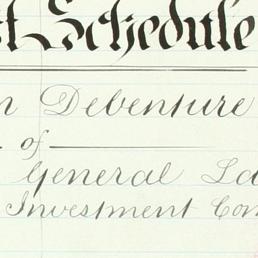 Schedule
Debenture
of
General
Investment